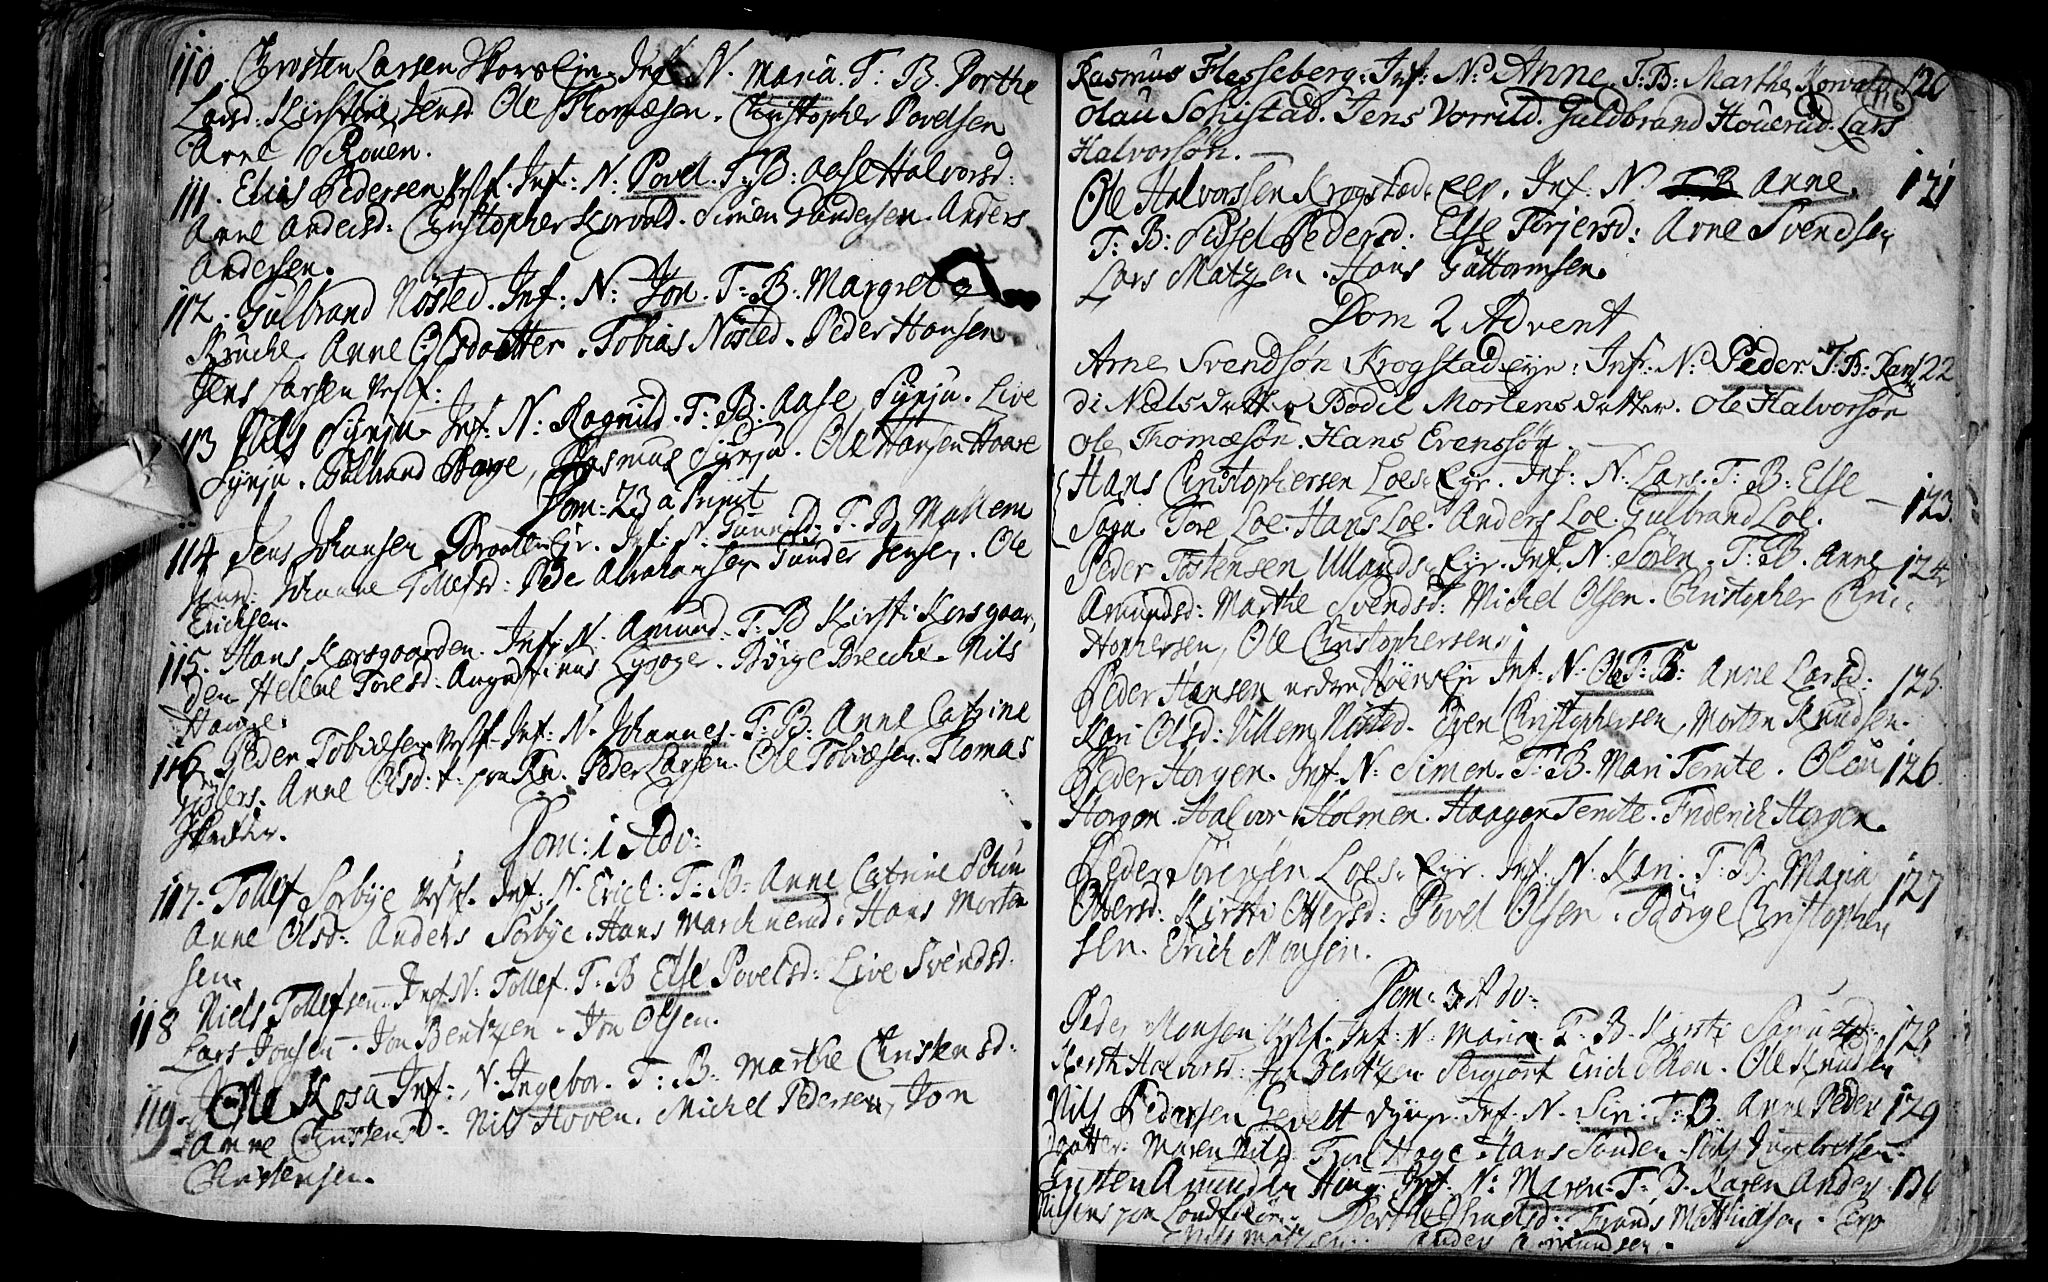 110. Christen Larsen Skors Eje. Inf. N. Maria. T: B. Dorthe
Larsd: Kirstine Jensd Ole Thomæsen. Christopher Povelsen
Arne Skouen.
111. Elias Pedersen Vestf. Inf: N: Povel. T: B: Aase Halvorsd:
Anne Andersd: Christopher Korvald. Simen Gundersen. Anders
Andersen.
112. Gulbrand Nösted. Inf: N: Jon. T: B. Margrete
Kruche. Anne Olsdaatter. Tobias Nösted. Peder Hansen
Jens Larsen Vestf:
113 Nils Synju. Inf: N: Ragnild. T: B: Aase Synju. Live
Synju. Gulbrand Hage, Rasmus Synju. Ole Hansen Haare
Dom: 23 a Trinit
114 Jens Johansen Braaten Eje. Inf: N. Gunnild: T: B Mallene
Jensd: Johanne Tollefsd: Peder Abrahamsen Gunder Jensen, Ole
Erichsen.
115. Hans Korsgaarden. Inf: N. Amund. T: B Kirsti Korsgaar,
den Hellene Toresd: Augustinus Lyzoge. Börge Brecke. Nils
Hauge.
116. Peder Tobiæsen Vestf. Inf: N. Johannes. T: B: Anne Catrine
Gislers. Anne Olsd: Peder Larsen. Ole Tobiæsen. Thomas
Skredder.
Dom: 1 Adv:
117. Tollef Sorbye Vestf. Inf: N. Erich: T: B: Anne Catrine Schou
Anne Olsd: Anders Sorbye. Hans Marchnerud. Hans Morten
sen.
118 Niels Tollefsen. Inf N: Tollef. T: B Else Povelsd: Live Svendsd.
Lars Jonsen. Jon Bentzen. Jon Olsen.
119. Ole Kosa Inf: N. Ingebor. T: B: Marthe Christensd:
Anne Christensd: Nils Hoven. Michel Pedersen, Jon
Christensen.
116
Rasmus Flesseberg: Inf: N: Anne. T: B: Marthe Korvald 120
Olau Sohistad. Jens Vorrild. Guldbrand Houerud. Lars
Halvorsön.
Ole Halvorssen Krogstad. Eje. Inf. N. Anne. 121
T: B: Sidsel Pedersd: Else Torjersd: Arne Svendsen
Lars Matzen. Hans Guttormsen.
Dom 2 Advent
Arne Svendsön Krogstad eje: Inf: N: Peder. T: B: Ran 122
di Nielsdatter Bodil Mortensdatter. Ole Halvorsön
Ole Thomæsön. Hans Evenssön.
Hans Christophersen Loes Eje. Inf: N. Lars. T: B: Else 123.
Sogn. Tore Loe. Hans Loe. Anders Loe. Gulbrand Loe.
Peder Tostensen Ullands Eje. Inf. N. Sören. T: B. Anne 124
Amundsd: Marthe Svendsd: Michel Olsen. Christopher Chri-
stophersen, Ole Christophersen.
Peder Hansen nedre Höens Eje Inf: N. Ole T: B: Anne Larsd: 125.
Kari Olsd: Villem Nösted. Even Christophersen, Morten Knudsen.
Peder Horgen. Inf. N: Simen. T: B. Mari Temte. Olau 126.
Horgen. Halvor Holmen. Haagen Temte. Friderich Horgen.
Peder Sörensen Loes Eje. Inf. N. Kari. T: B. Maria 127
Ottersd: Kirsti Ottersd: Povel Olsen. Börge Christopher
sen. Erich Monsen.
Dom: 3 Adv:
Peder Monsen Vestf. Inf. N. Maria. T: B. Kirsti 128
Berth Halvorsd: Jon Bentzen Sergiant Erich Schou. Ole Knudsen
Nils Pedersen Gevelt Inf. N. Siri: T: B. Anne Peders 129
daatter. Maren Nilsd: Hage. Hans Sanden. Nils Ingebretsen.
Christen Amundsen Haug. Inf. N: Maren: T: B. Karen Anders 130
Nilsens paa Berthe Trond Mathiæsen. Erp
Nils Matzen. Anders Amundsen.